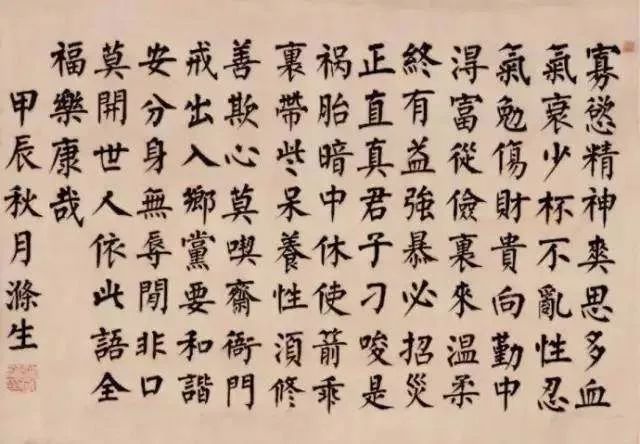 寡慾精神爽思多血
氣衰少杯不亂性忍
氣勉傷財貴向勤中
淂富從儉裏來溫柔
終有益強暴必招災
正直真君子刁唆是
祸胎暗中休使箭乖
裏帶些呆養性須修
善欺心莫喫齋衙門
戒出入鄉黨要和諧
安分身無辱閒非口
莫開世人依此語全
福樂康哉
甲辰秋月滌生